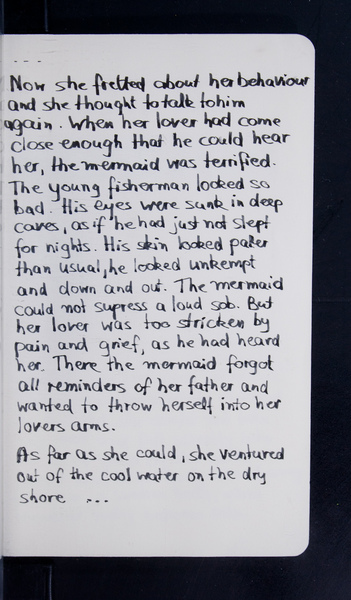 ...
Now she fretted about her behaviour
and she thought to talk to him
again. When her lover had come
close enough that he could hear
her, the mermaid was terrified.
The young fisherman looked so
bad. His eyes were sunk in deep
caves, as if he had just not slept
for nights. His skin looked paler
than usual, he looked unkempt
and down and out. The mermaid
could not supress a loud sob. But
her lover was too stricken by
pain and grief, as he had heard
her. There the mermaid forgot
all reminders of her father and
wanted to throw herself into her
lovers arms.
As far as she could, she ventured
out of the cool water on the dry
shore ...